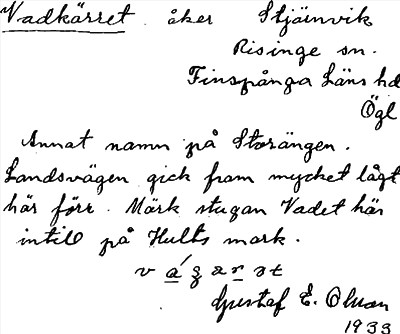 Vadkärret åker Stjärnvik
Risinge sn.
Finspånga Läns hd
Ögl
Annat namn på Storängen.
Landsvägen gick fram mycket lågt
här förr. Märk stugan Vadet här
intill på Hults mark.
Gustaf E. Olson
1933